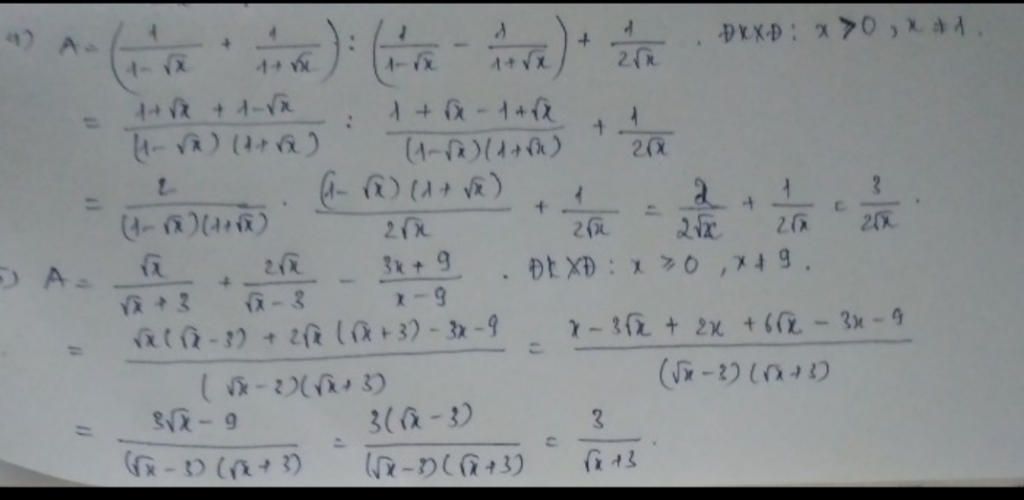 4) A = (1/(1-√x) + 1/(1+√x)) : (1/(1-√x) - 1/(1+√x)) + 1/(2√x) . ĐKXĐ: x > 0, x ≠ 1.
= (1+√x + 1-√x)/((1-√x)(1+√x)) : (1+√x-1+√x)/((1-√x)(1+√x)) + 1/(2√x)
= 2/((1-√x)(1+√x)) . ((1-√x)(1+√x))/(2√x) + 1/(2√x) = 2/(2√x) + 1/(2√x) = 3/(2√x) .
5) A = √x/(√x+3) + 2√x/(√x-3) - (3x+9)/(x-9) . ĐKXĐ: x ≥ 0, x ≠ 9.
= (√x(√x-3) + 2√x(√x+3) - 3x-9)/((√x-3)(√x+3)) = (x-3√x + 2x + 6√x - 3x - 9)/((√x-3)(√x+3))
= (3√x - 9)/((√x-3)(√x+3)) = 3(√x-3)/((√x-3)(√x+3)) = 3/(√x+3) .